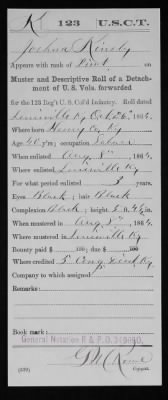 K | 123 | U.S.C.T.
Joshua Kinely
Appears with rank of Pvt. on
Muster and Descriptive Roll of a Detachment
of U. S. Vols. forwarded
for the 123 Reg't U. S. Col'd Infantry. Roll dated
Louisville Ky Oct 26, 1864.
Where born Henry Co. Ky
Age 40 y'rs; occupation
When enlisted Aug 8, 1864.
Where enlisted Louisville Ky
For what period enlisted 3 years.
Eyes Black; hair Black
Complexion Black; height 5 ft. in.
When mustered in Aug 8, 1864.
Where mustered in Louisville Ky
Bounty paid $ 100; due $ 100
Where credited 5 Cong. Dist. Ky
Company to which assigned
Remarks:
Book mark:
General Notation R & P D
(339) Copyist.